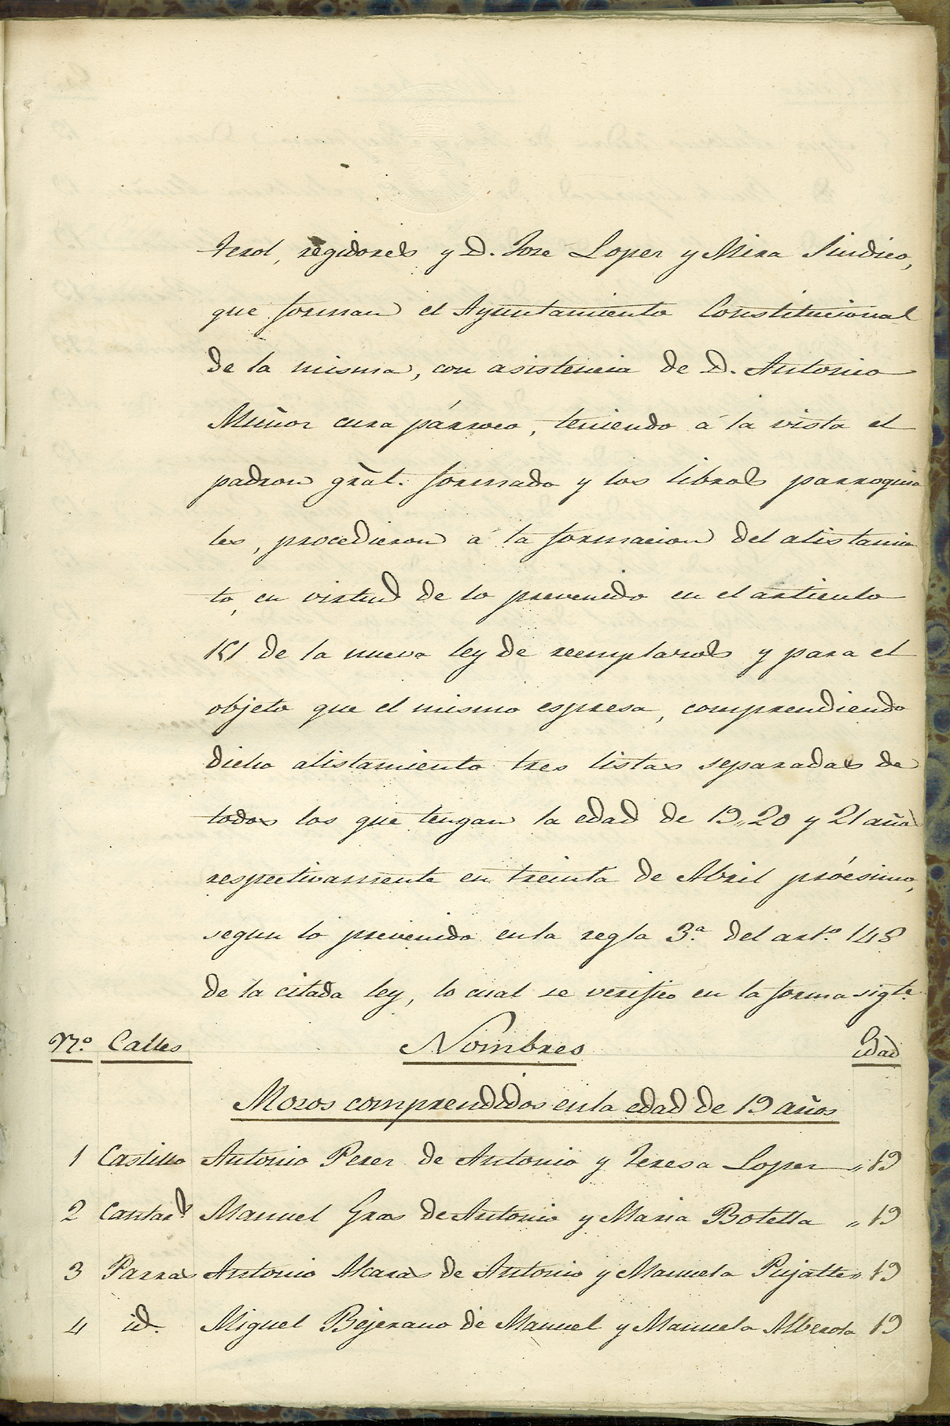 terol, regidores y D. Jose Lopez y Mira Sindico,
que forman el Ayuntamiento Constitucional
de la misma, con asistencia de D. Antonio
Muñoz cura párroco, teniendo á la vista el
padron gral. formado y los libros parroquia
les, procedieron á la formacion del alistamien
to, en virtud de lo prevenido en el articulo
151 de la nueva ley de reemplazos y para el
objeto que el mismo espresa, comprendiendo
dicho alistamiento tres listas separadas de
todos los que tengan la edad de 19, 20 y 21 años
respectivamente en treinta de Abril próximo,
segun lo prevenido en la regla 3.ª del art.º 148
de la citada ley, lo cual se verifico en la forma sigte.
N.º Calles Nombres Edad
Mozos comprendidos en la edad de 19 años
1 Castillo Antonio Perez de Antonio y Teresa Lopez „ 19
2 Manuel Gras de Antonio y Maria Botella „ 19
3 Parras Antonio Alcaras de Antonio y Manuela Pujalte „ 19
4 id. Miguel Bejerano de Manuel y Manuela Alberola 19